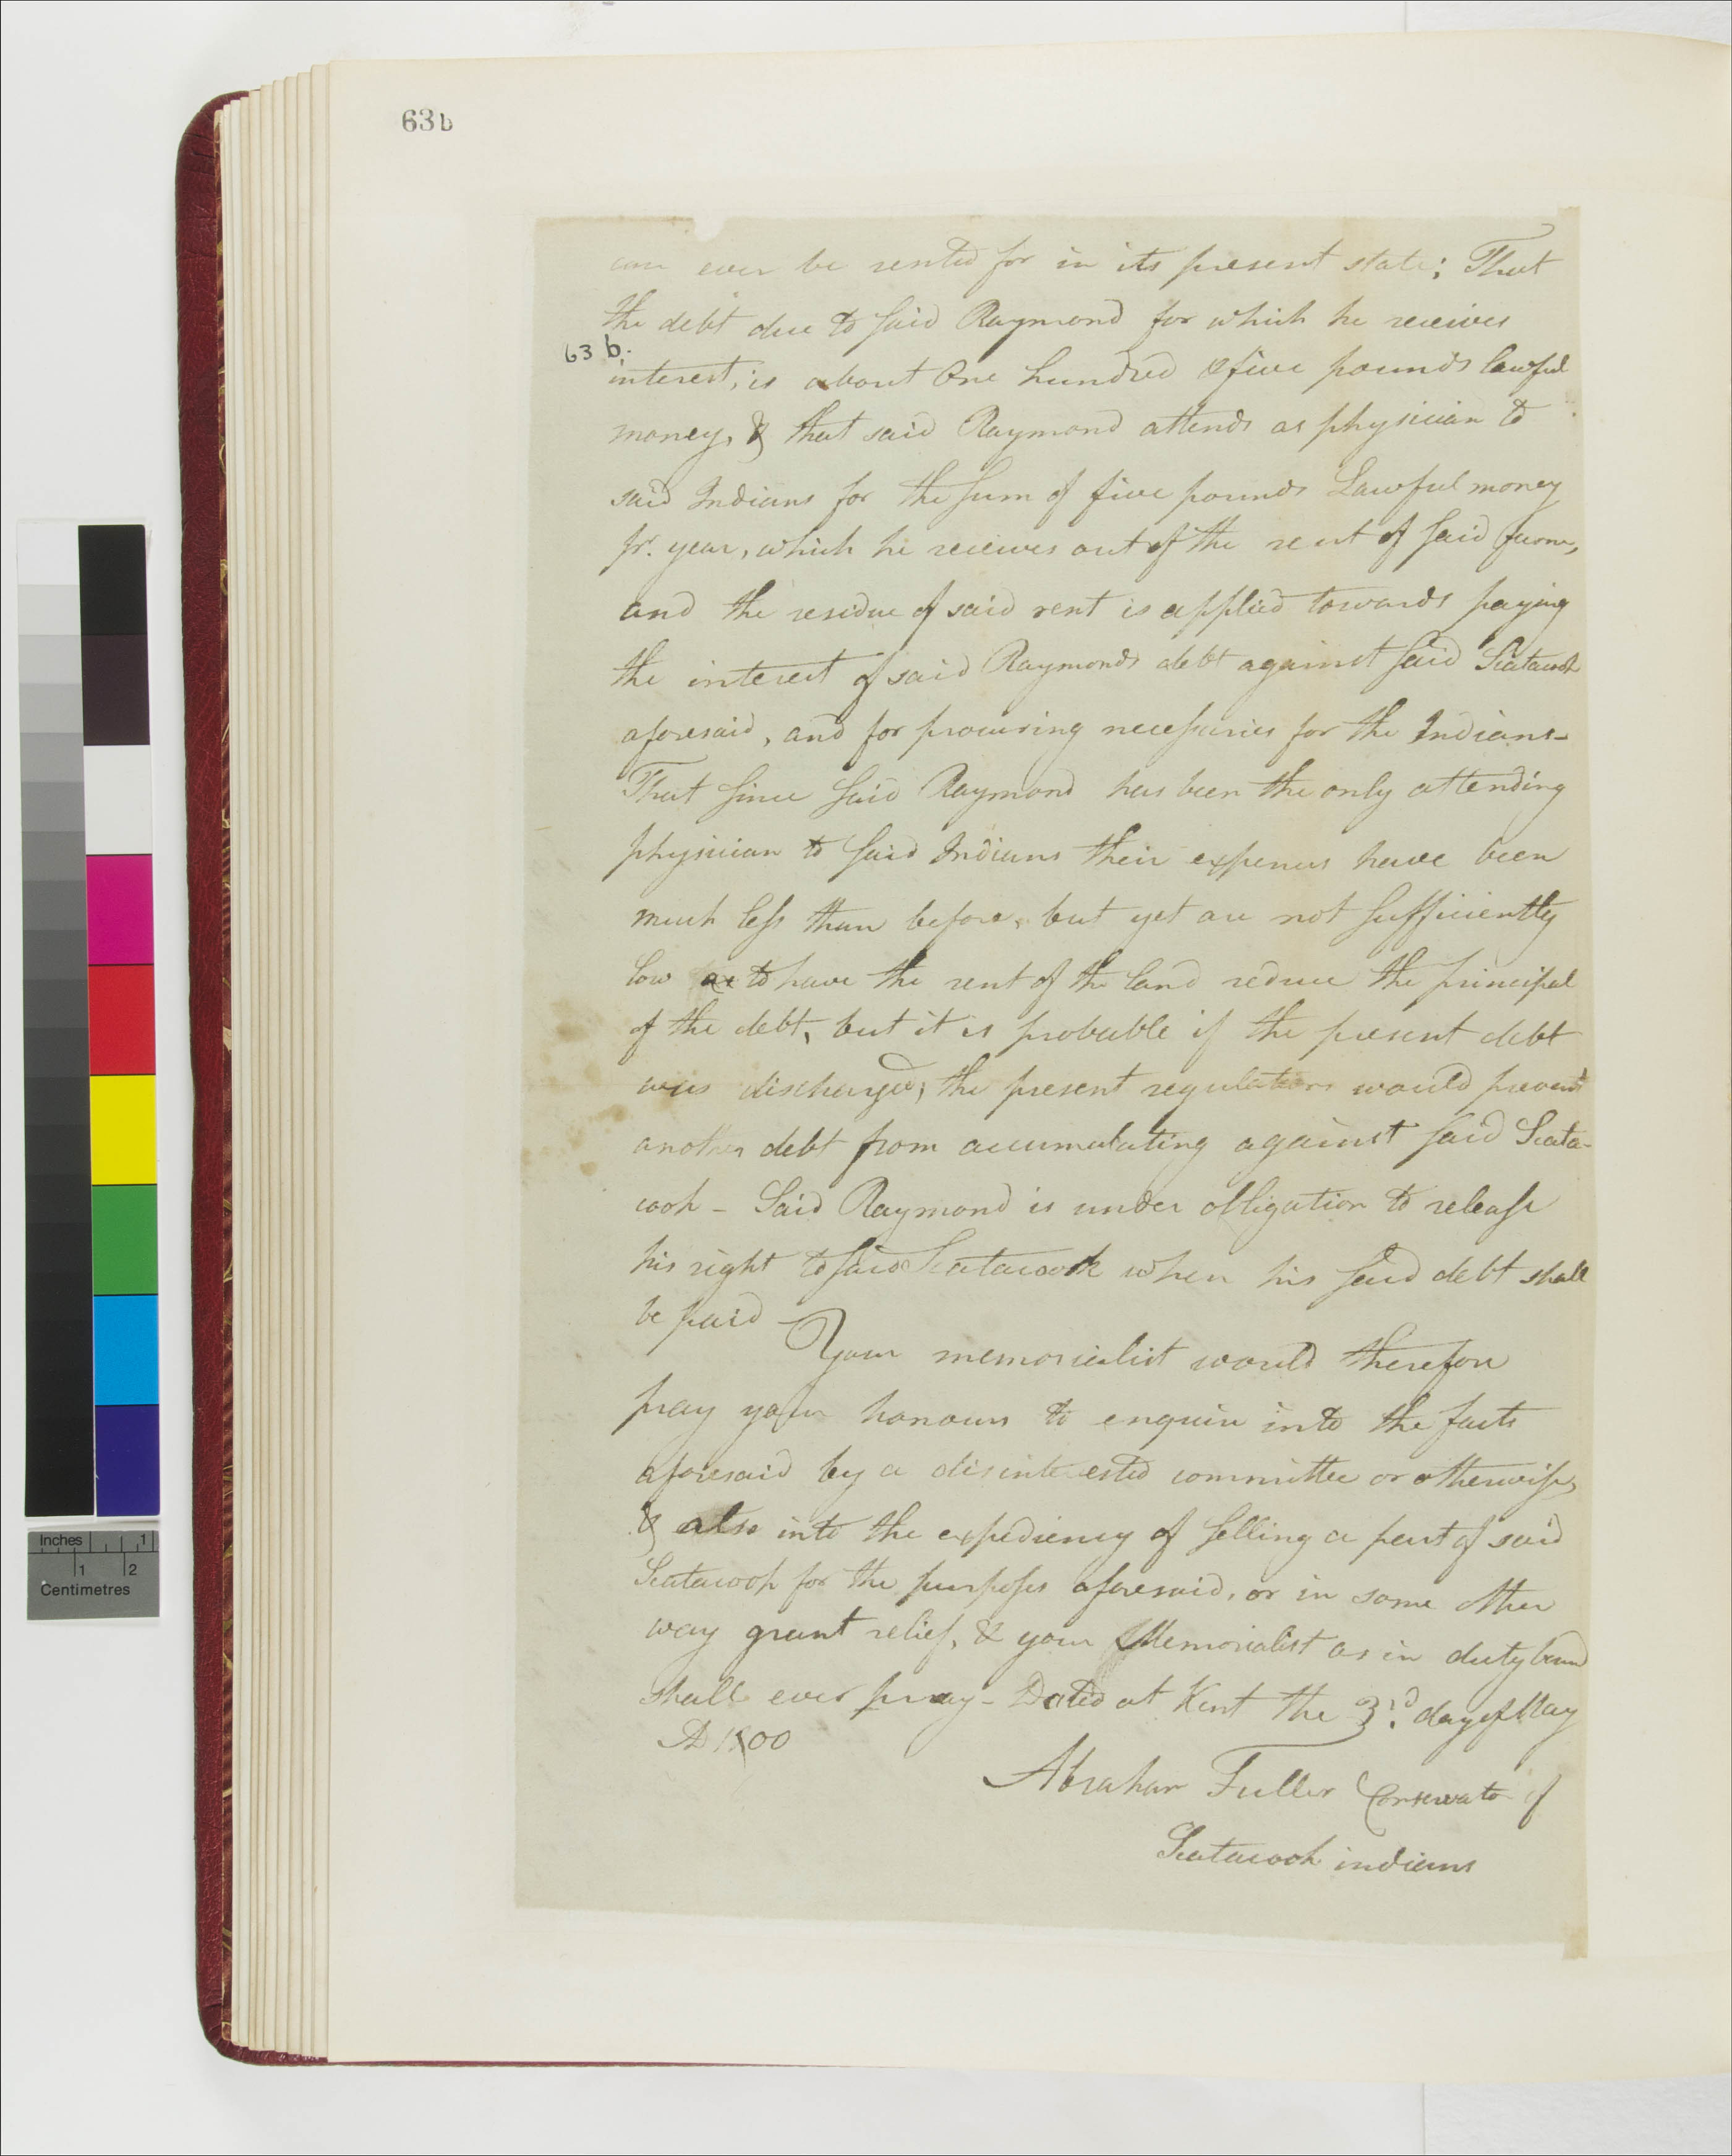 63b
can ever be rented for in its present state; That
the debt due to said Raymond for which he receives
63 b.
interest, is about One hundred & five pounds lawful
money, & that said Raymond attends as physician to
said Indians for the sum of five pounds Lawful money
pr. year, which he receives out of the rent of said farm,
and the residue of said rent is applied towards paying
the interest of said Raymonds debt against said Scatacook
aforesaid, and for procuring necessaries for the Indians-
That since said Raymond has been the only attending
physician to said Indians their expences have been
much less than before, but yet are not sufficiently
low as to have the rent of the land reduce the principal
of the debt, but it is probable if the present debt
was discharged, the present regulations would prevent
another debt from accumulating against said Scata-
cook - Said Raymond is under obligation to release
his right to said Scatacook when his said debt shall
be paid -
Your memorialist would therefore
pray your honours to enquire into the facts
aforesaid by a disinterested committee or otherwise,
& also into the expediency of selling a part of said
Scatacook for the purposes aforesaid, or in some other
way grant relief, & your Memorialist as in duty bound
shall ever pray - Dated at Kent the 3rd. day of May
AD 1800
Abraham Fuller Conservator of
Scatacook indians
Inches 1
1 2
Centimetres